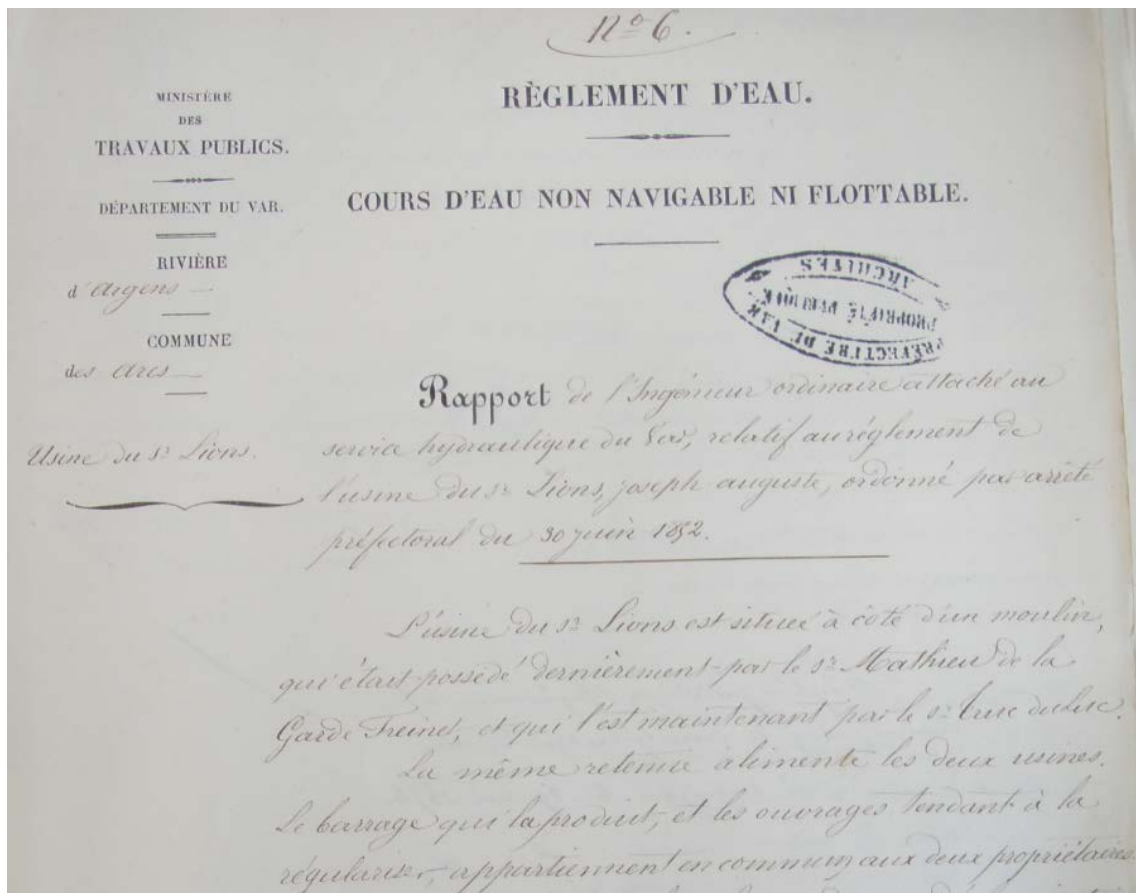 N° 6.
RÈGLEMENT D'EAU.
COURS D'EAU NON NAVIGABLE NI FLOTTABLE.
MINISTÈRE
DES
TRAVAUX PUBLICS.
DÉPARTEMENT DU VAR.
RIVIÈRE
d'Argens
COMMUNE
des Arcs
Usine du Sr Lions.
PRÉFECTURE DU VAR
PROPRIÉTÉ PUBLIQUE
ARCHIVES
Rapport de l'Ingénieur ordinaire attaché au
service hydraulique du Var, relatif au réglement de
l'usine du Sr Lions, Joseph auguste, ordonné par arrêté
préfectoral du 30 juin 1852.
L'usine du Sr Lions est située à côté d'un moulin,
qui était possédé dernièrement par le Sr Mathieu de la
Garde Freinet, et qui l'est maintenant par le Sr Truc du Luc.
La même retenue alimente les deux usines.
Le barrage qui la produit, et les ouvrages tendant à la
régulariser, appartiennent en commun aux deux propriétaires.